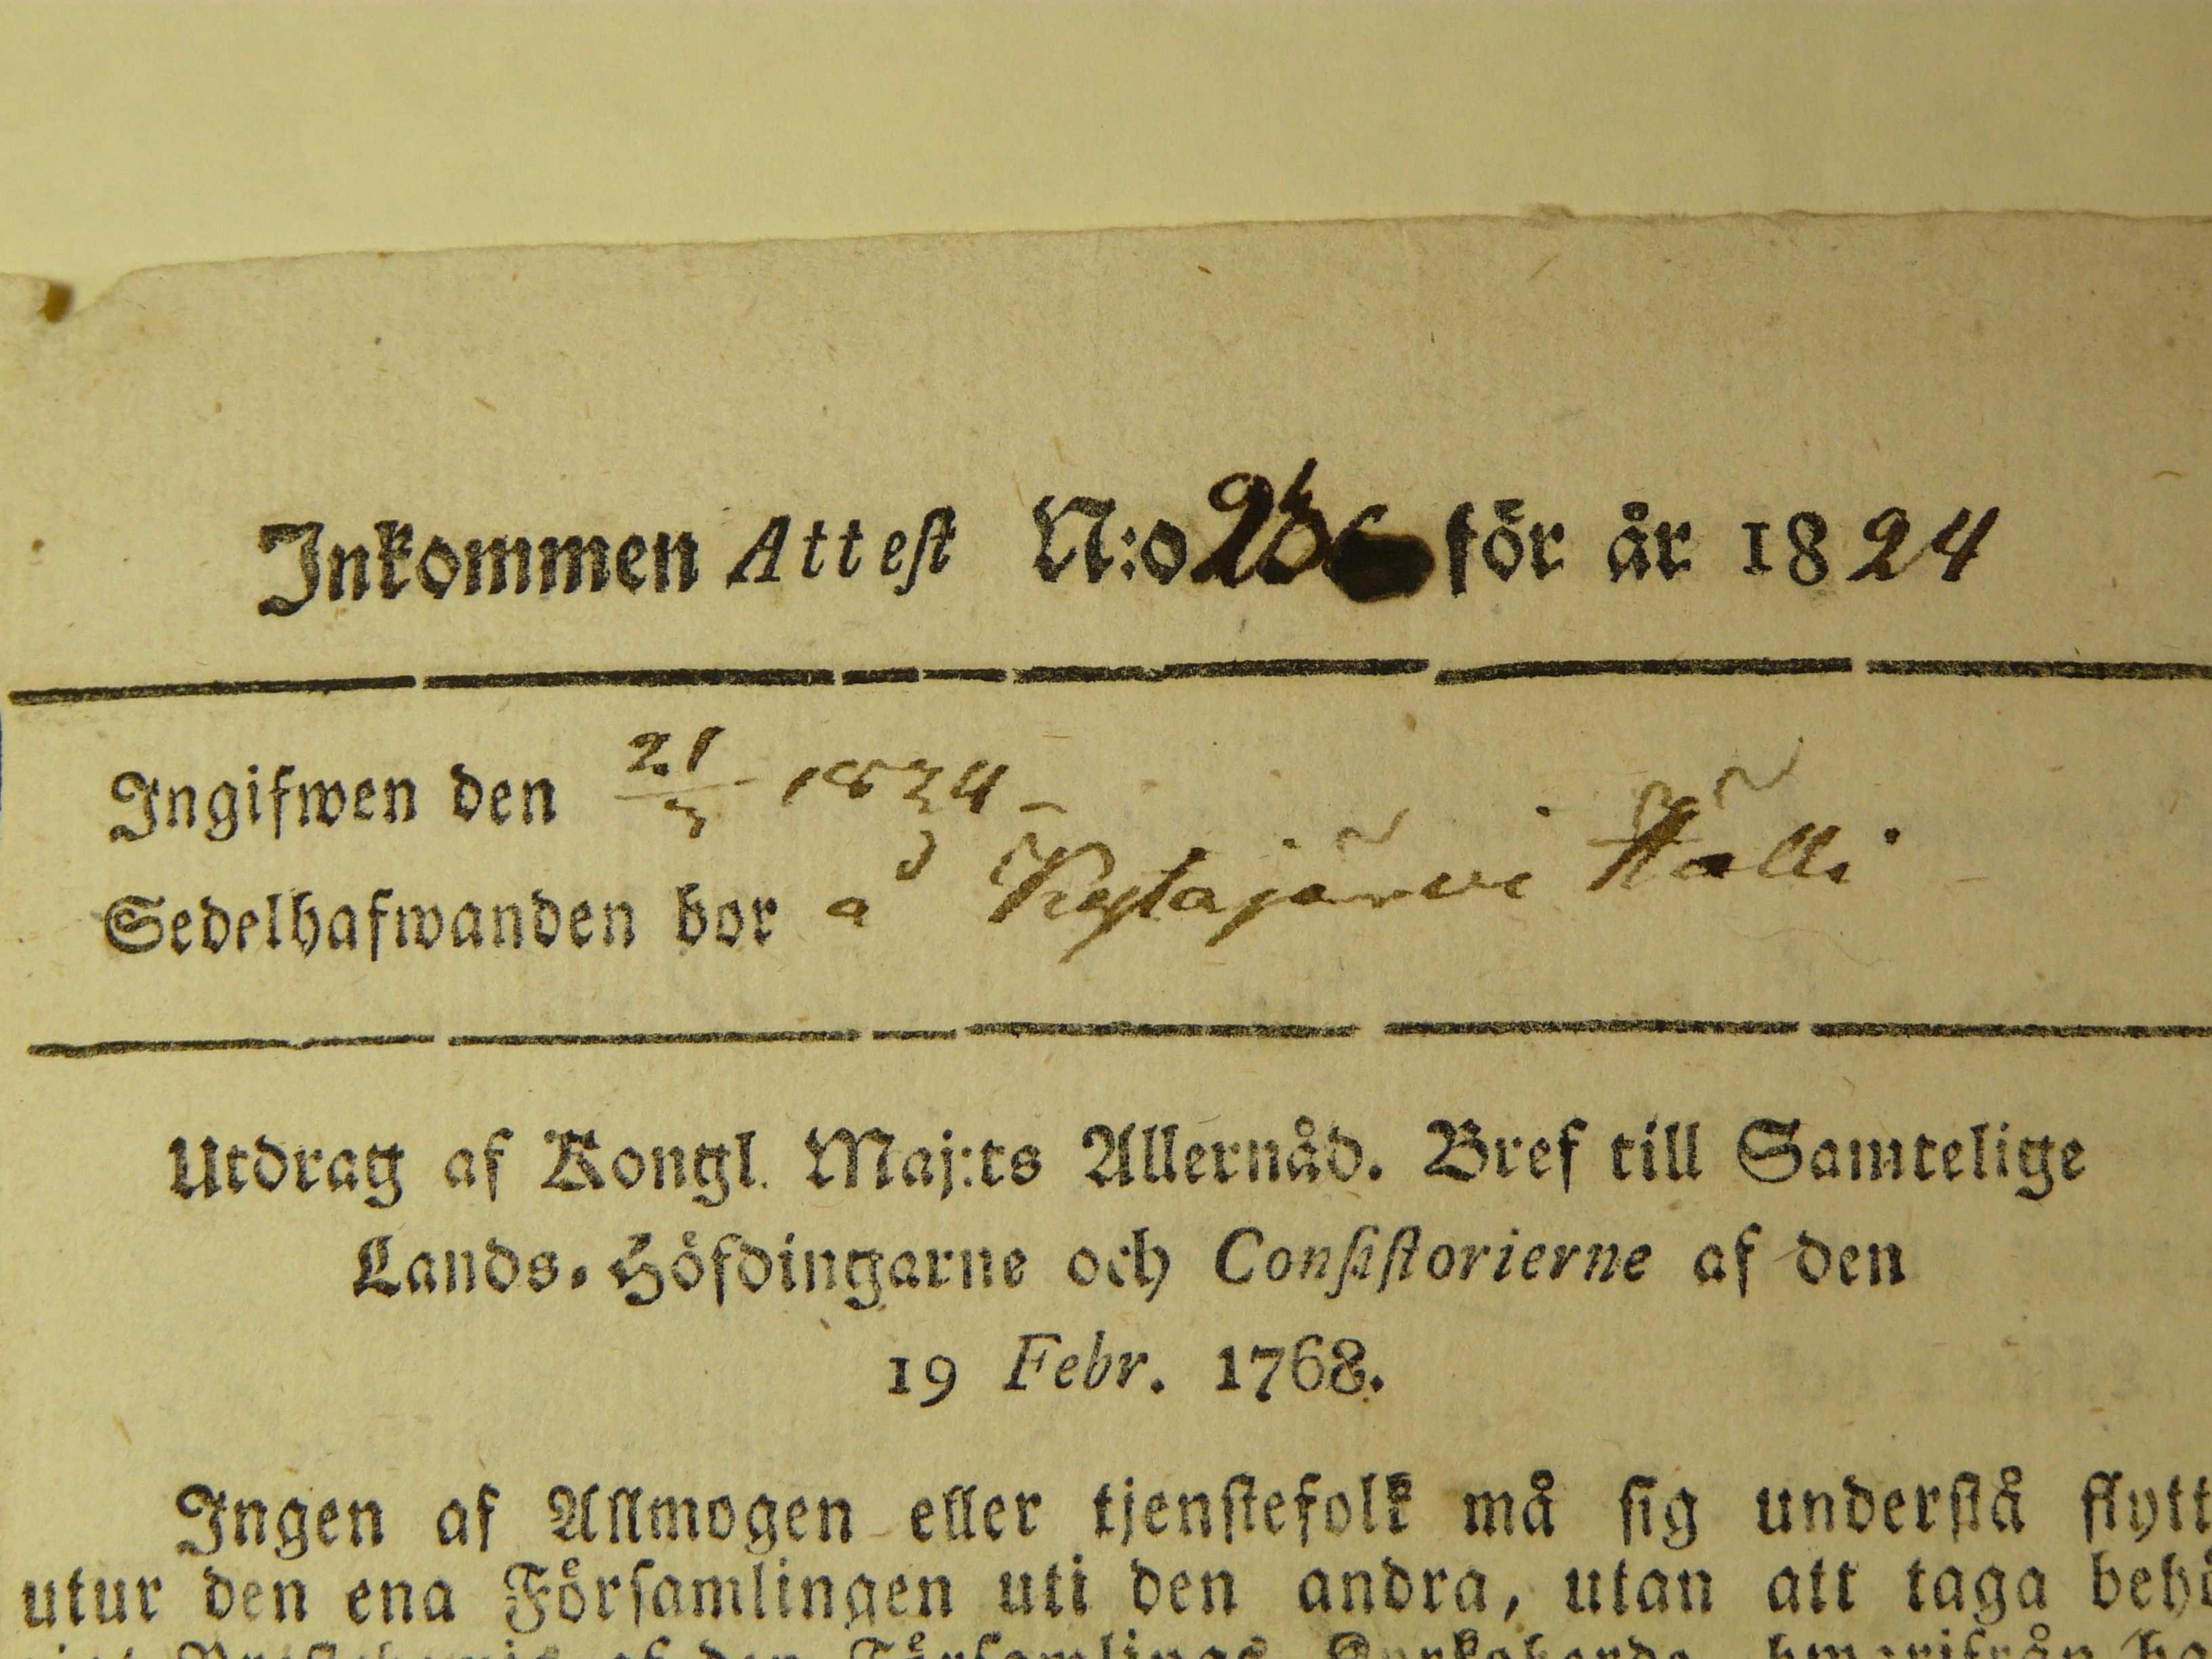 Inkommen Attest N:o för år 1824
Ingifwen den 21/3 1824
Sedelhafwanden bor å Kylajärvi Källi
Utdrag af Kongl. Maj:ts Allernåd. Bref till Samtelige
Lands-Höfdingarne och Consistorierne af den
19 Febr. 1768.
Ingen af Allmogen eller tjenstefolk må sig understå flytt
utur den ena Församlingen uti den andra, utan att taga behö